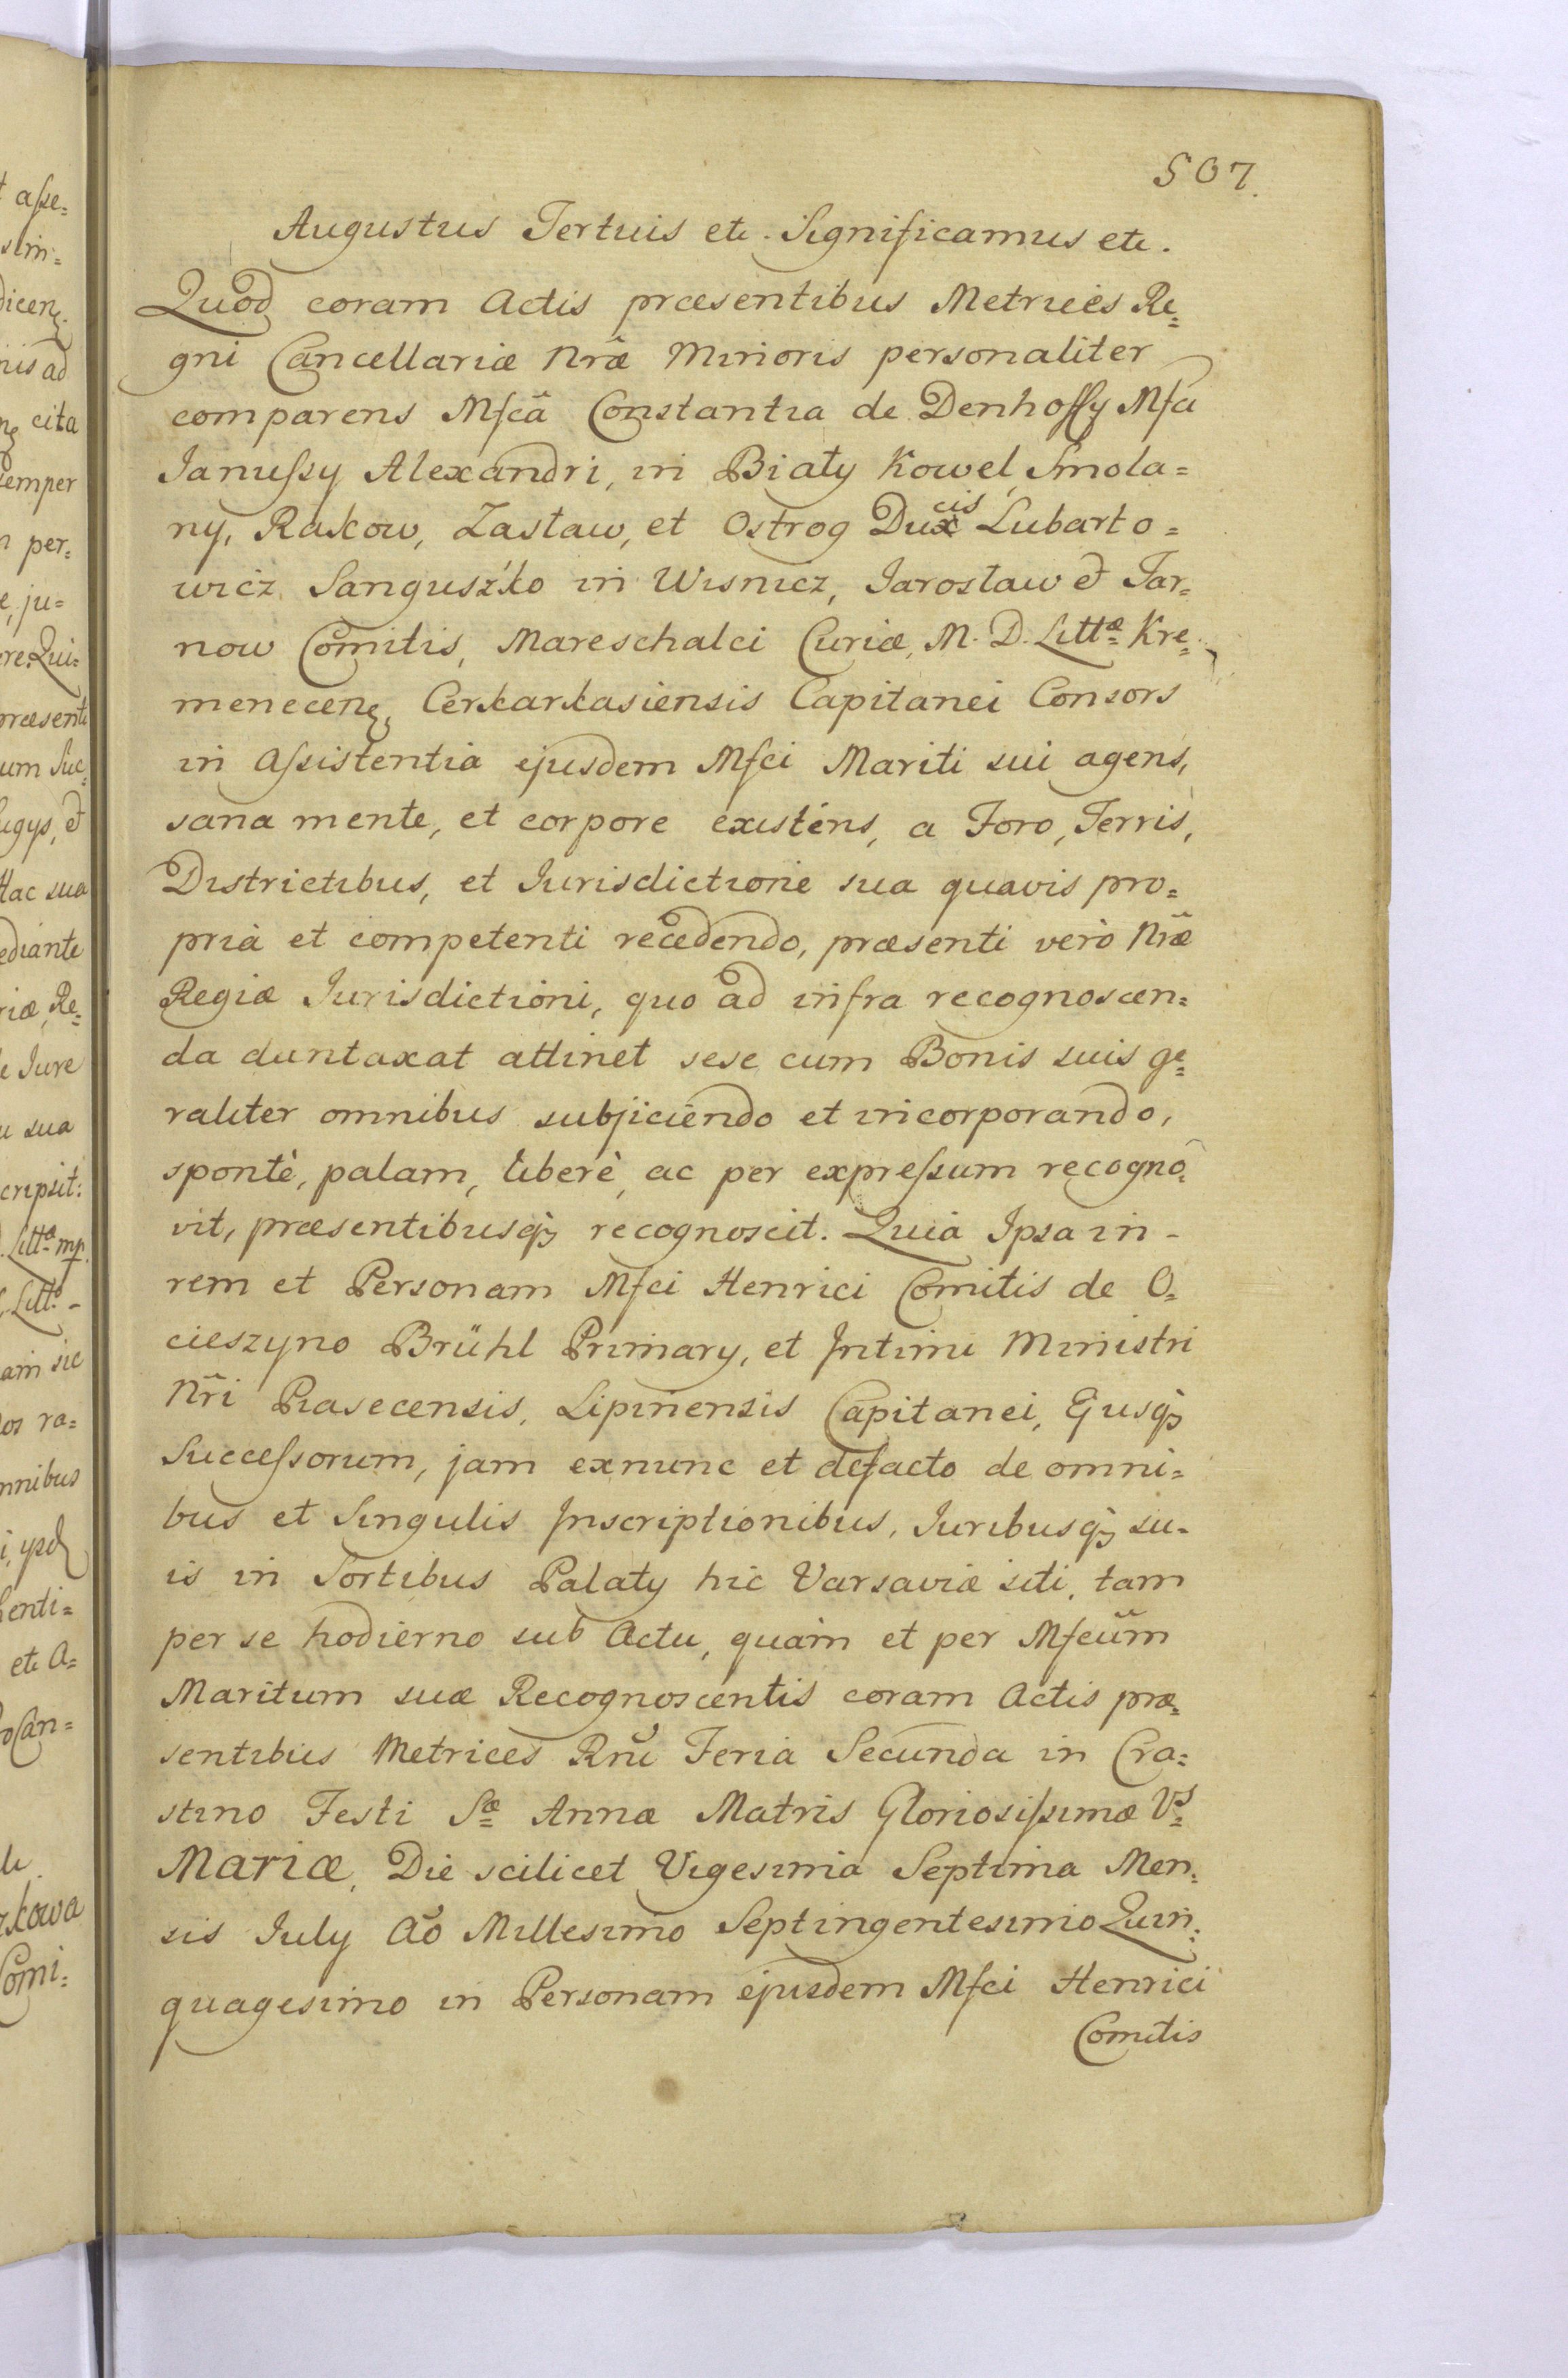 507.
Augustus Tertius etc. Significamus etc.
Quod coram Actis præsentibus Metrices Re=
gni Cancellariæ Nræ Minoris personaliter
comparens Mfca Constantia de Denhoffy Mfci
Ianuſsy Alexandri, in Biały Kowel, Smola=
ny, Rakow, Zasław, et Ostrog Ducis Lubarto=
wicz Sanguszko in Wisnicz, Jarosław et Tar=
now Comitis, Mareschalci Curiæ, M. D. Littæ Kre=
menecen, Cerkarkasiensis Capitanei Consors
in Aſsistentia ejusdem Mfci Mariti sui agens,
sana mente, et corpore existens, a Foro, Terris,
Districtibus, et Jurisdictione sua quavis pro=
pria et competenti recedendo, præsenti verò Nræ
Regiæ Jurisdictioni, quo ad infra recognoscen=
da duntaxat attinet sese cum Bonis suis ge=
raliter omnibus subjiciendo et incorporando,
spontè, palam, liberè, ac per expreſsum recogno=
vit, præsentibusq; recognoscit. Quia Ipsa in -
rem et Personam Mfci Henrici Comitis de O=
cieszyno Brühl Primary, et Intimi Ministri
Nri Piasecensis, Lipinensis Capitanei, Ejusq;
Succeſsorum, jam exnunc et defacto de omni=
bus et Singulis Inscriptionibus, Juribusq; su=
is in Sortibus Palaty hic Varsaviæ siti, tam
per se hodierno sub Actu, quàm et per Mfcum
Maritum suæ Recognoscentis coram Actis præ=
sentibus Metrices Rni Feria Secunda in Cra=
stino Festi Sæ Annæ Matris Gloriosiſsimæ Vs
Mariæ, Die scilicet Vigesima Septima Men=
sis July Ao Millesimo Septingentesimo Quin=
quagesimo in Personam ejusdem Mfci Henrici
Comitis